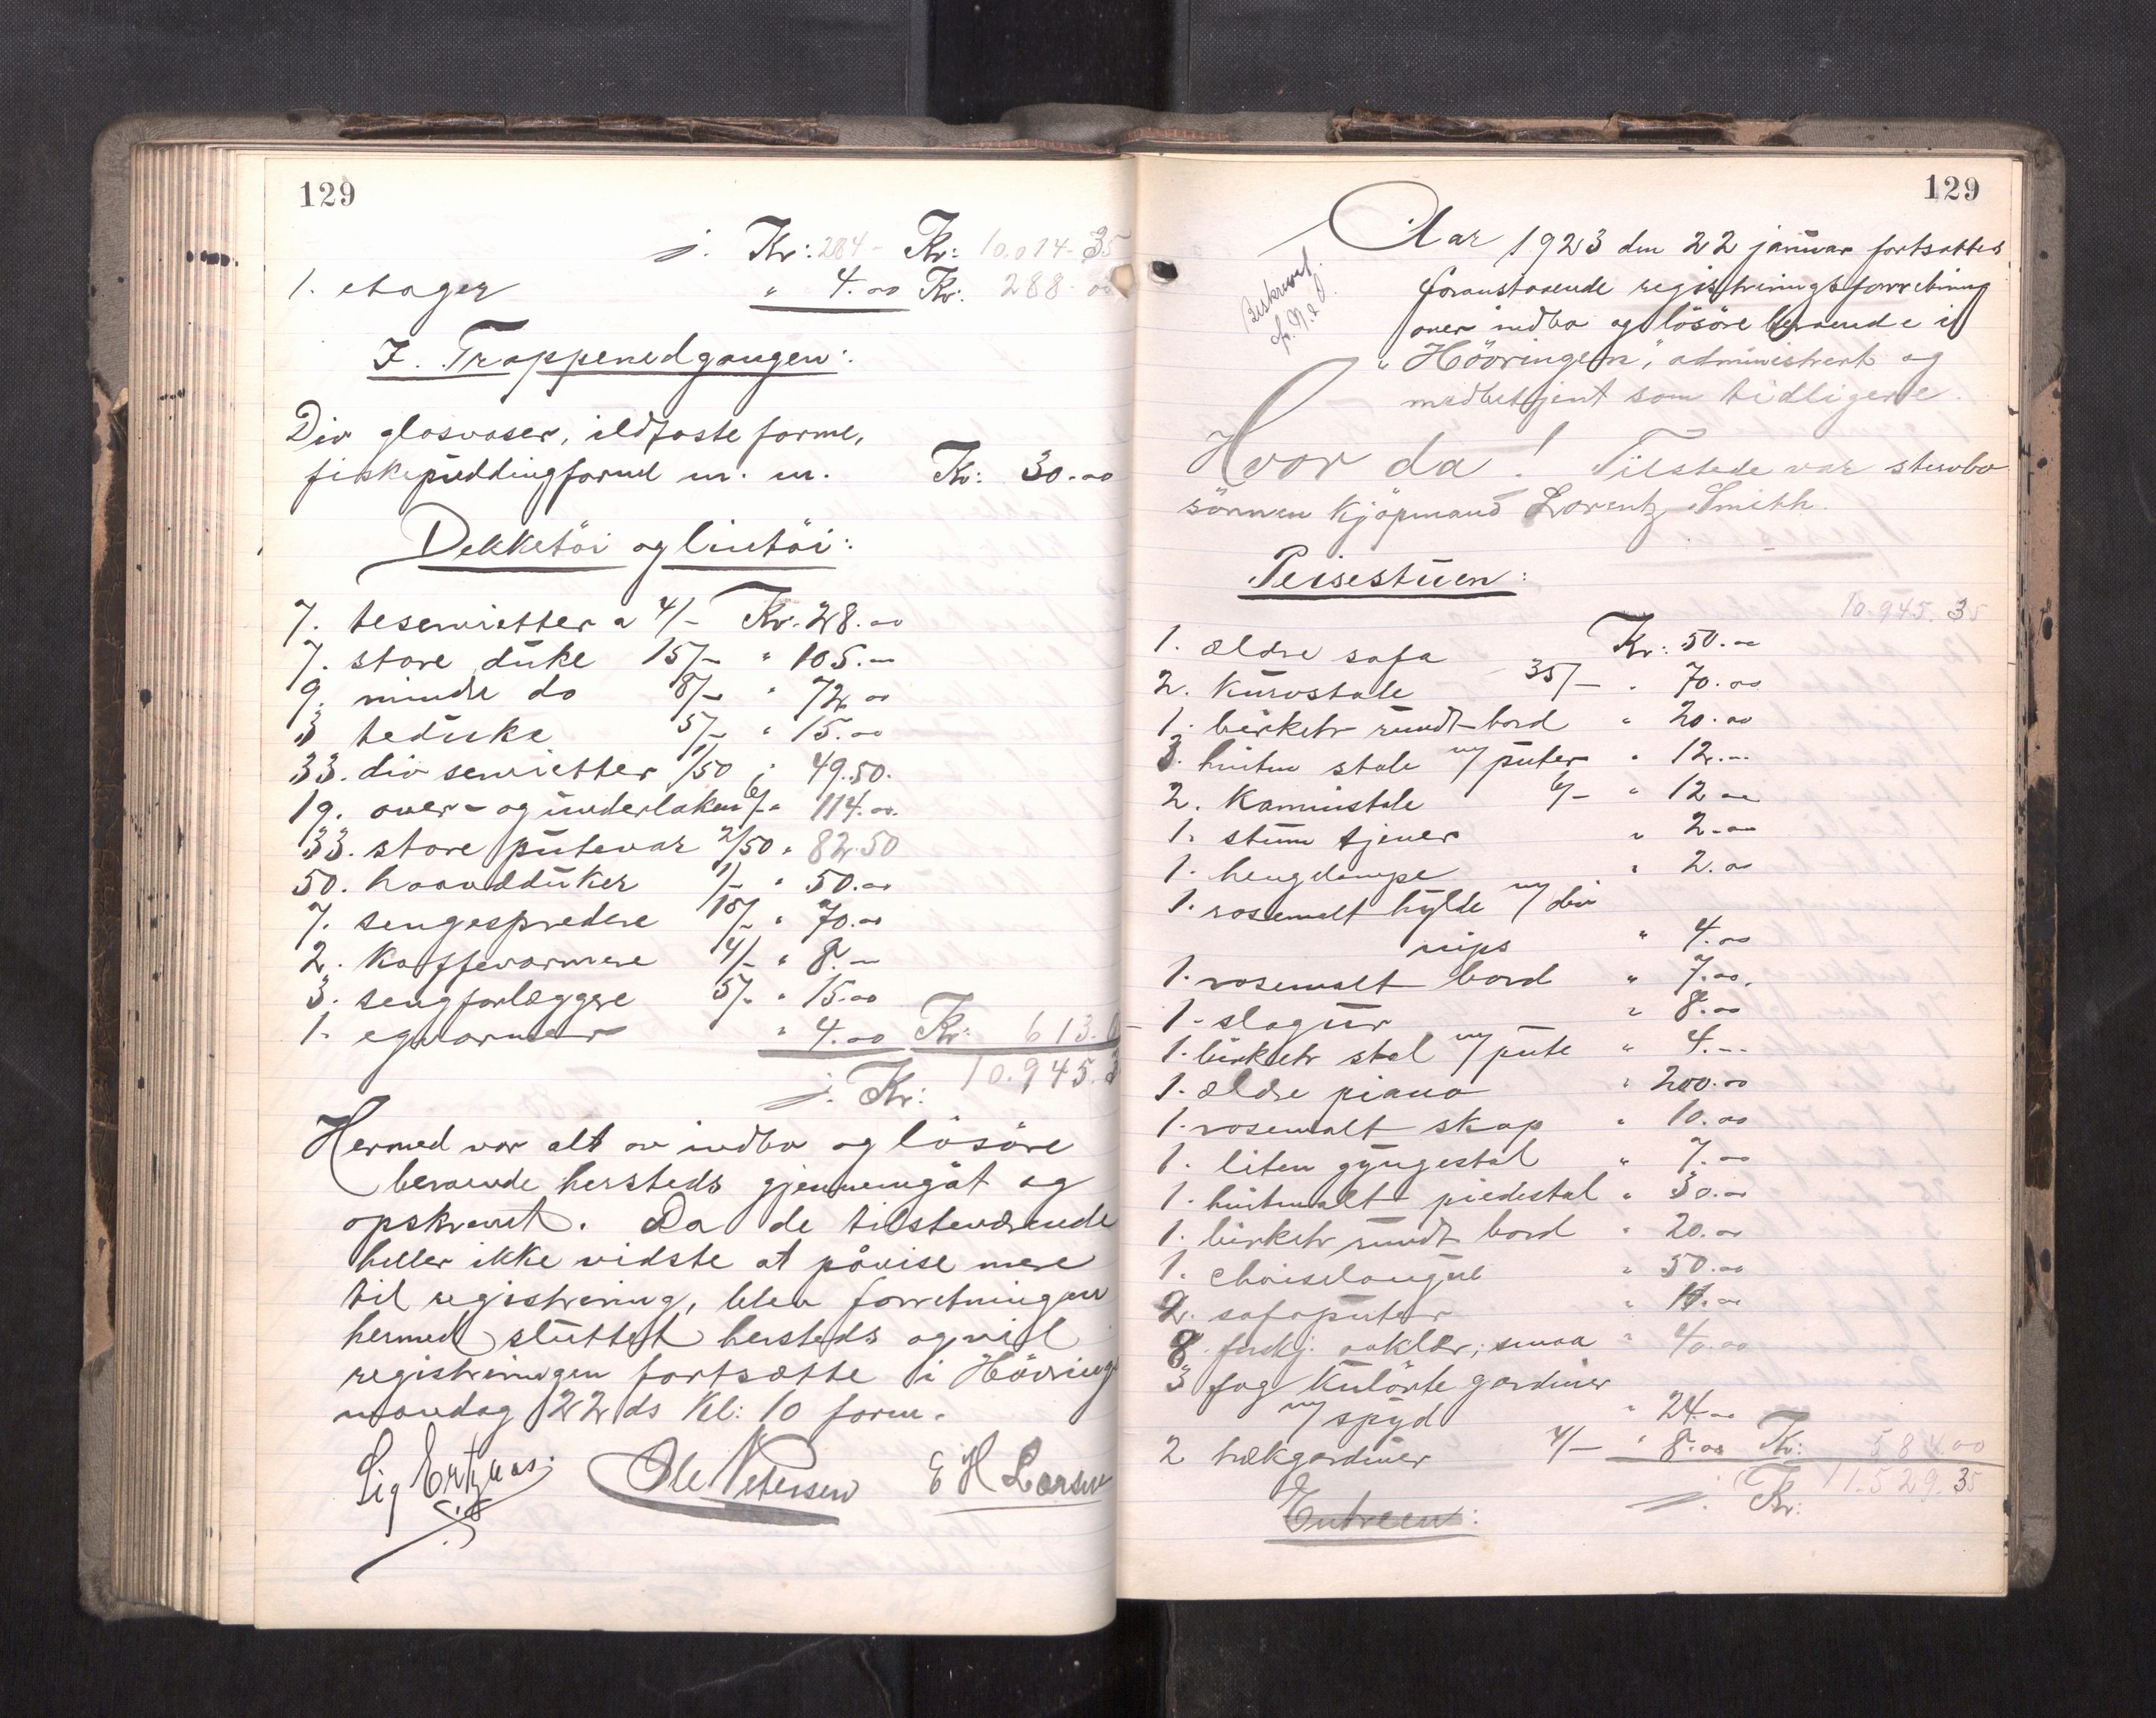 129
j. Kr: 284 - Kr: 10.014-35
1. etager " 4.00 Kr. 288.00
I. Trappenedgangen:
Div glasvaser, ildfaste forme,
fiskepuddingformer m. m. Kr: 30.00
Dekketöi og lintöi:
7. teservietter a 4/- Kr. 28.00
7. store duke 15/- " 105.--
9. mindre do 8/- " 72.00
3 teduke 5/- " 15.00
33. div servietter 1/50 " 49.50.
19. over- og underlaken 6/- " 114.00.
33. store putevar 2/50 " 82.50
50. haandduker 1/- " 50.00
7. sengespredere 10/- " 70.00
2. kaffevarmere 4/- " 8.--
3. sengforlæggere 5/- " 15.00
1. egvarmer " 4.00 Kr: 613.
j. Kr: 10.945.3
Hermed var alt av indbo og lösöre
beroende hersteds gjennemgåt og
opskrevet. Da de tilstedeværende
heller ikke vidste at påvise mere
til registrering, blev forretningen
hermed sluttet hersteds og vil
registreringen fortsætte i Hövring
mandag 22 ds Kl: 10 form.
Sig Ole Petersen E H Larsen
129
Aar 1923 den 22 januar fortsattes
foranstaaende registreringsforretning
over indbo og lösöre beroende i
"Hövringen", administrert og
medbetjent som tidligere.
Beskrevet
Hvor da! Tilstede var stervbo
sönnen Kjöpmand Lorentz Smith.
Peisestuen:
10.945.35
1. ældre sofa Kr: 50.00
2. Kurvstole 35/- " 70.00
1. birketr rundt bord " 20.00
3. hvitm stole m/ puter " 12.--
2. Kaminstole 6/- " 12.00
1. stum tjener " 2.00
1. hengelampe " 2.00
1. rosemalt hylde m/ div
nips " 4.00
1. rosemalt bord " 7.00.
1. slagur " 8.00
1. birketr stol m/ pute " 4.--
1. ældre piano " 200.00
1. rosemalt skap " 10.00
1. liten gyngestol " 7.00
1. hvitmalt piedestal " 30.00
1. birketr rundt bord " 20.00
1. chaiselongue " 50.00
2. sofaputer "
8. forskj. aaklær, smaa " 40.00
3 fag kulörte gardiner
m/ spyd " 24.00
2 trækgardiner 4/- " 8.00 Kr: 584.00
j. Kr: 11.529.35
Entreen: